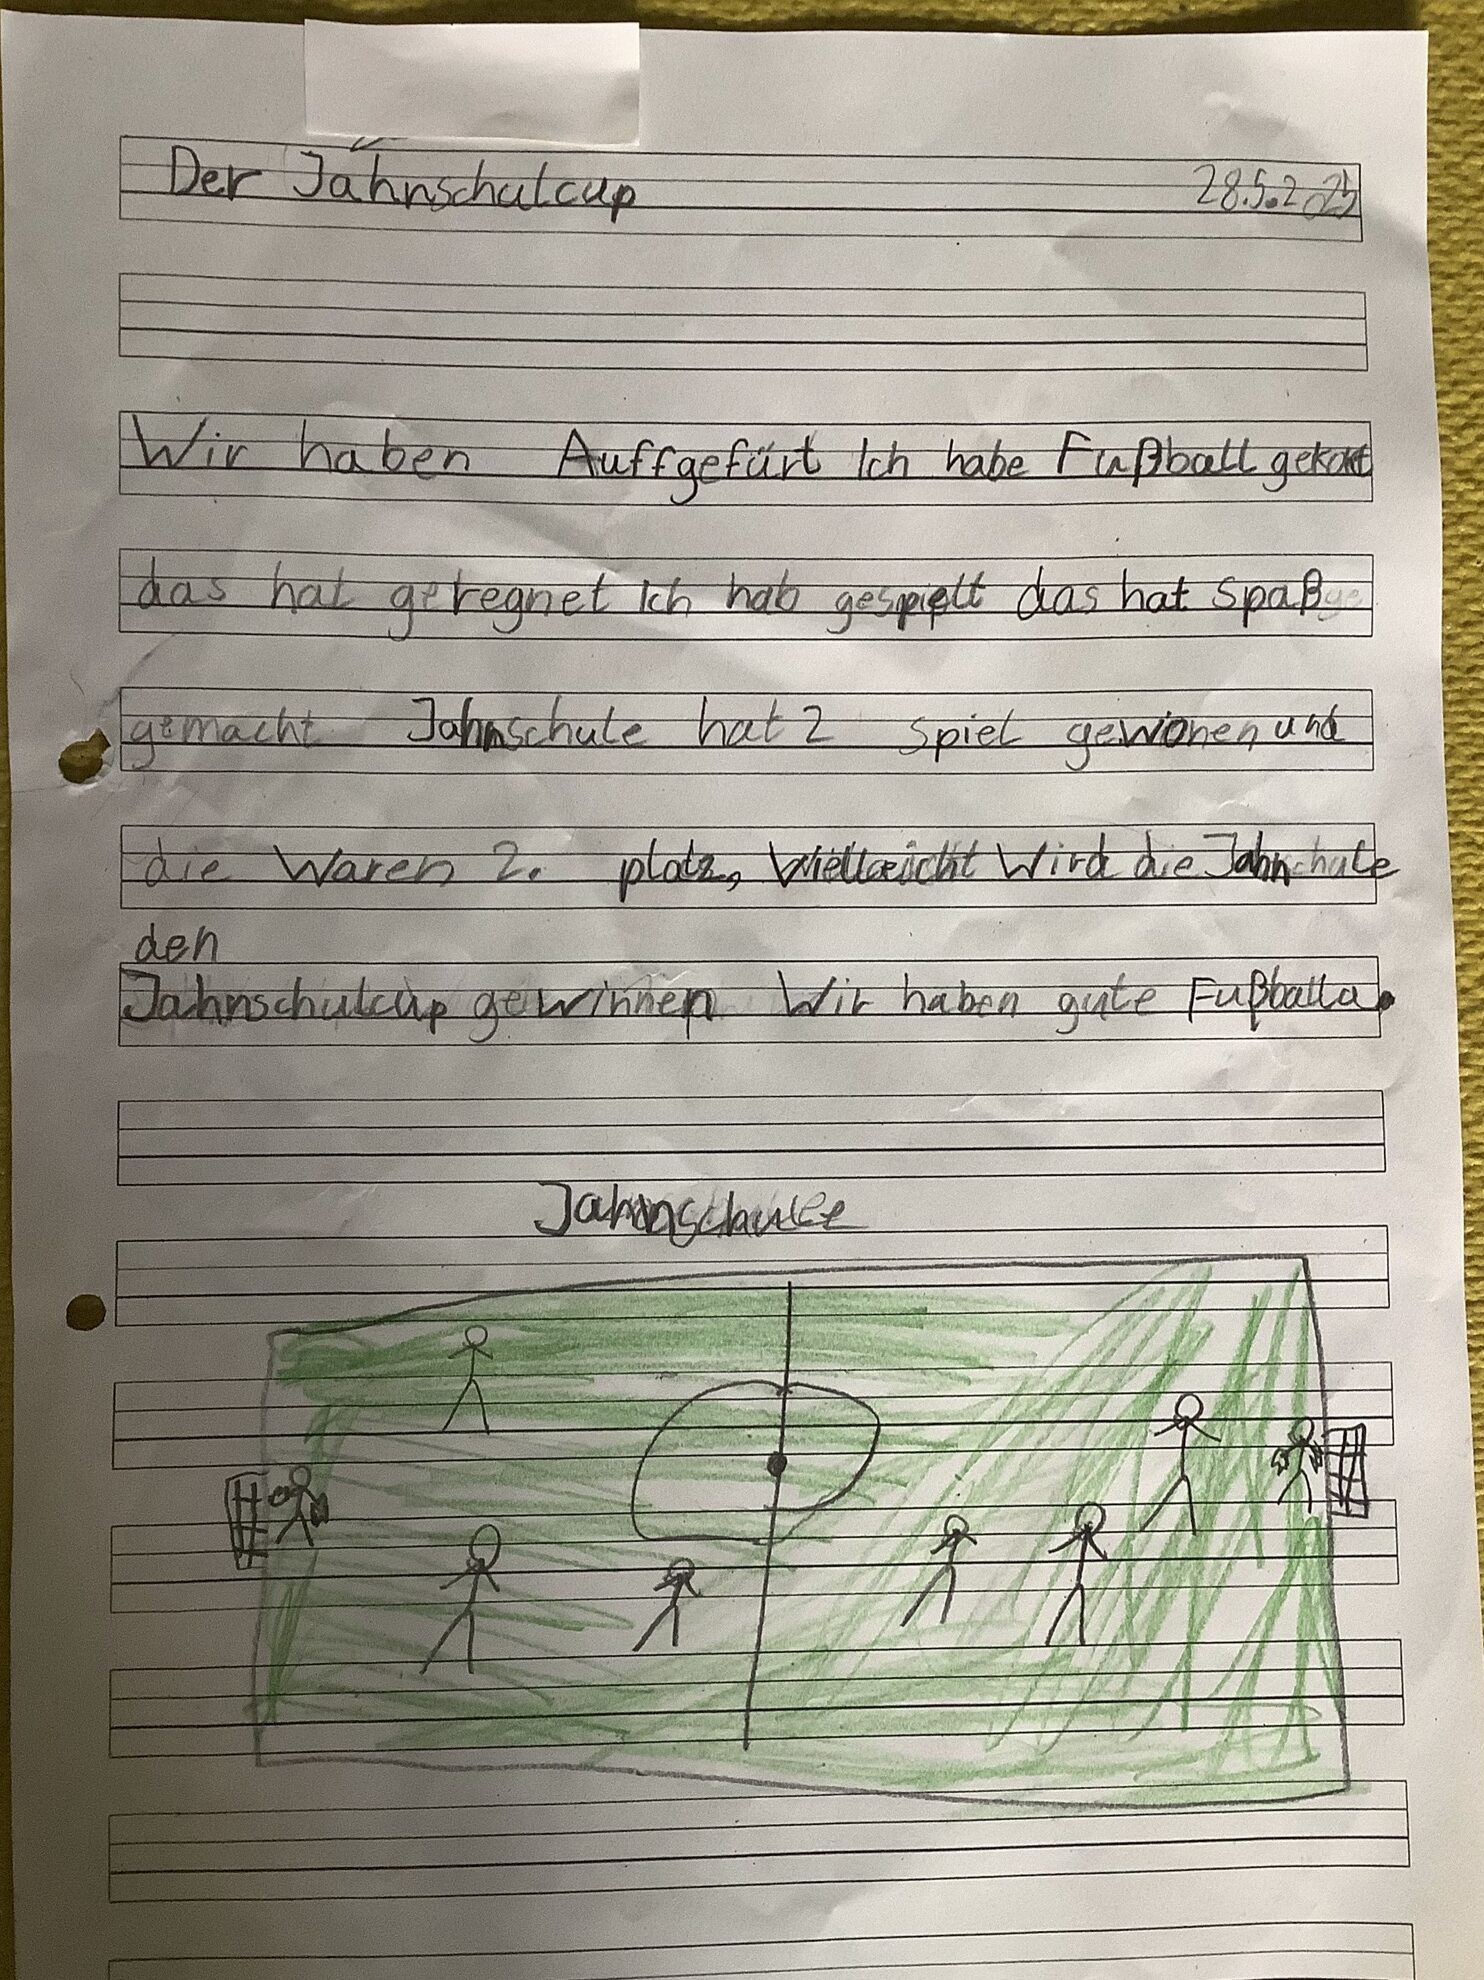 Der Jahnschulcup 28.5.2025
Wir haben Auffgefürt Ich habe Fußball
das hat geregnet Ich hab gespielt das hat Spaß
gemacht Jahnschule hat 2 spiel gewonen und
die Waren 2. platz, Vielleicht Wird die Jahnchule
den
Jahnschulcup gewinnen Wir haben gute Fußballa.
Jahnschule